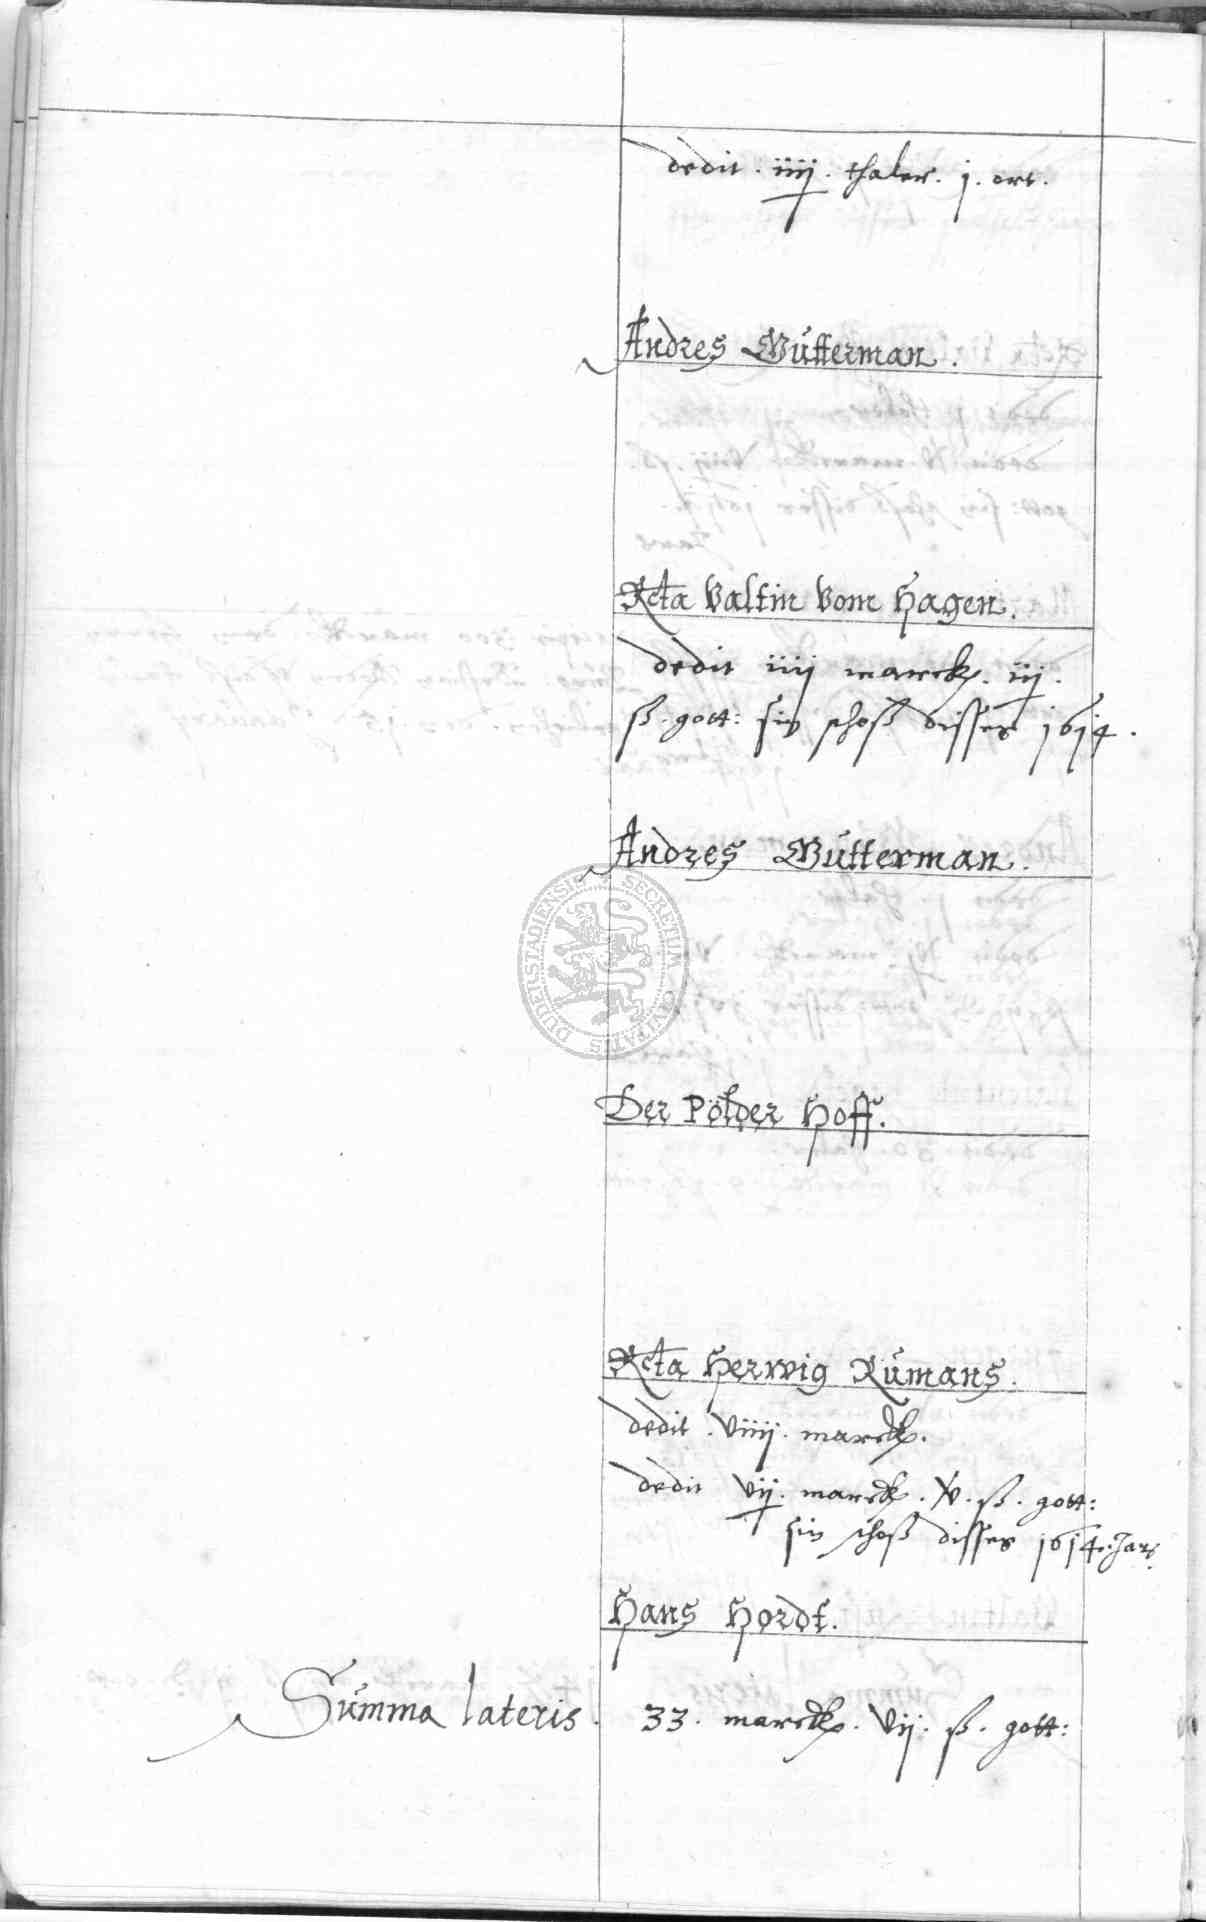 dedit . iiij . thaler . j . ort .
Andres Wütterman .
Rcta Valtin Vom Hagen .
dedit iiij marck . iij .
ß . gott : sin schoß disses 1614 .
Andres Wütterman .
DUDERSTADIENSIS * SECRETUM CIVITATIS
Der Pölder Hoff .
Rcta Herwig Rümans .
dedit . Viiij . marck .
dedit Vij . marck . V . ß . gott :
sin schoß disses 1614 . Jars
Hans Hordt .
Summa lateris . 33 . marck . Vij . ß . gott :